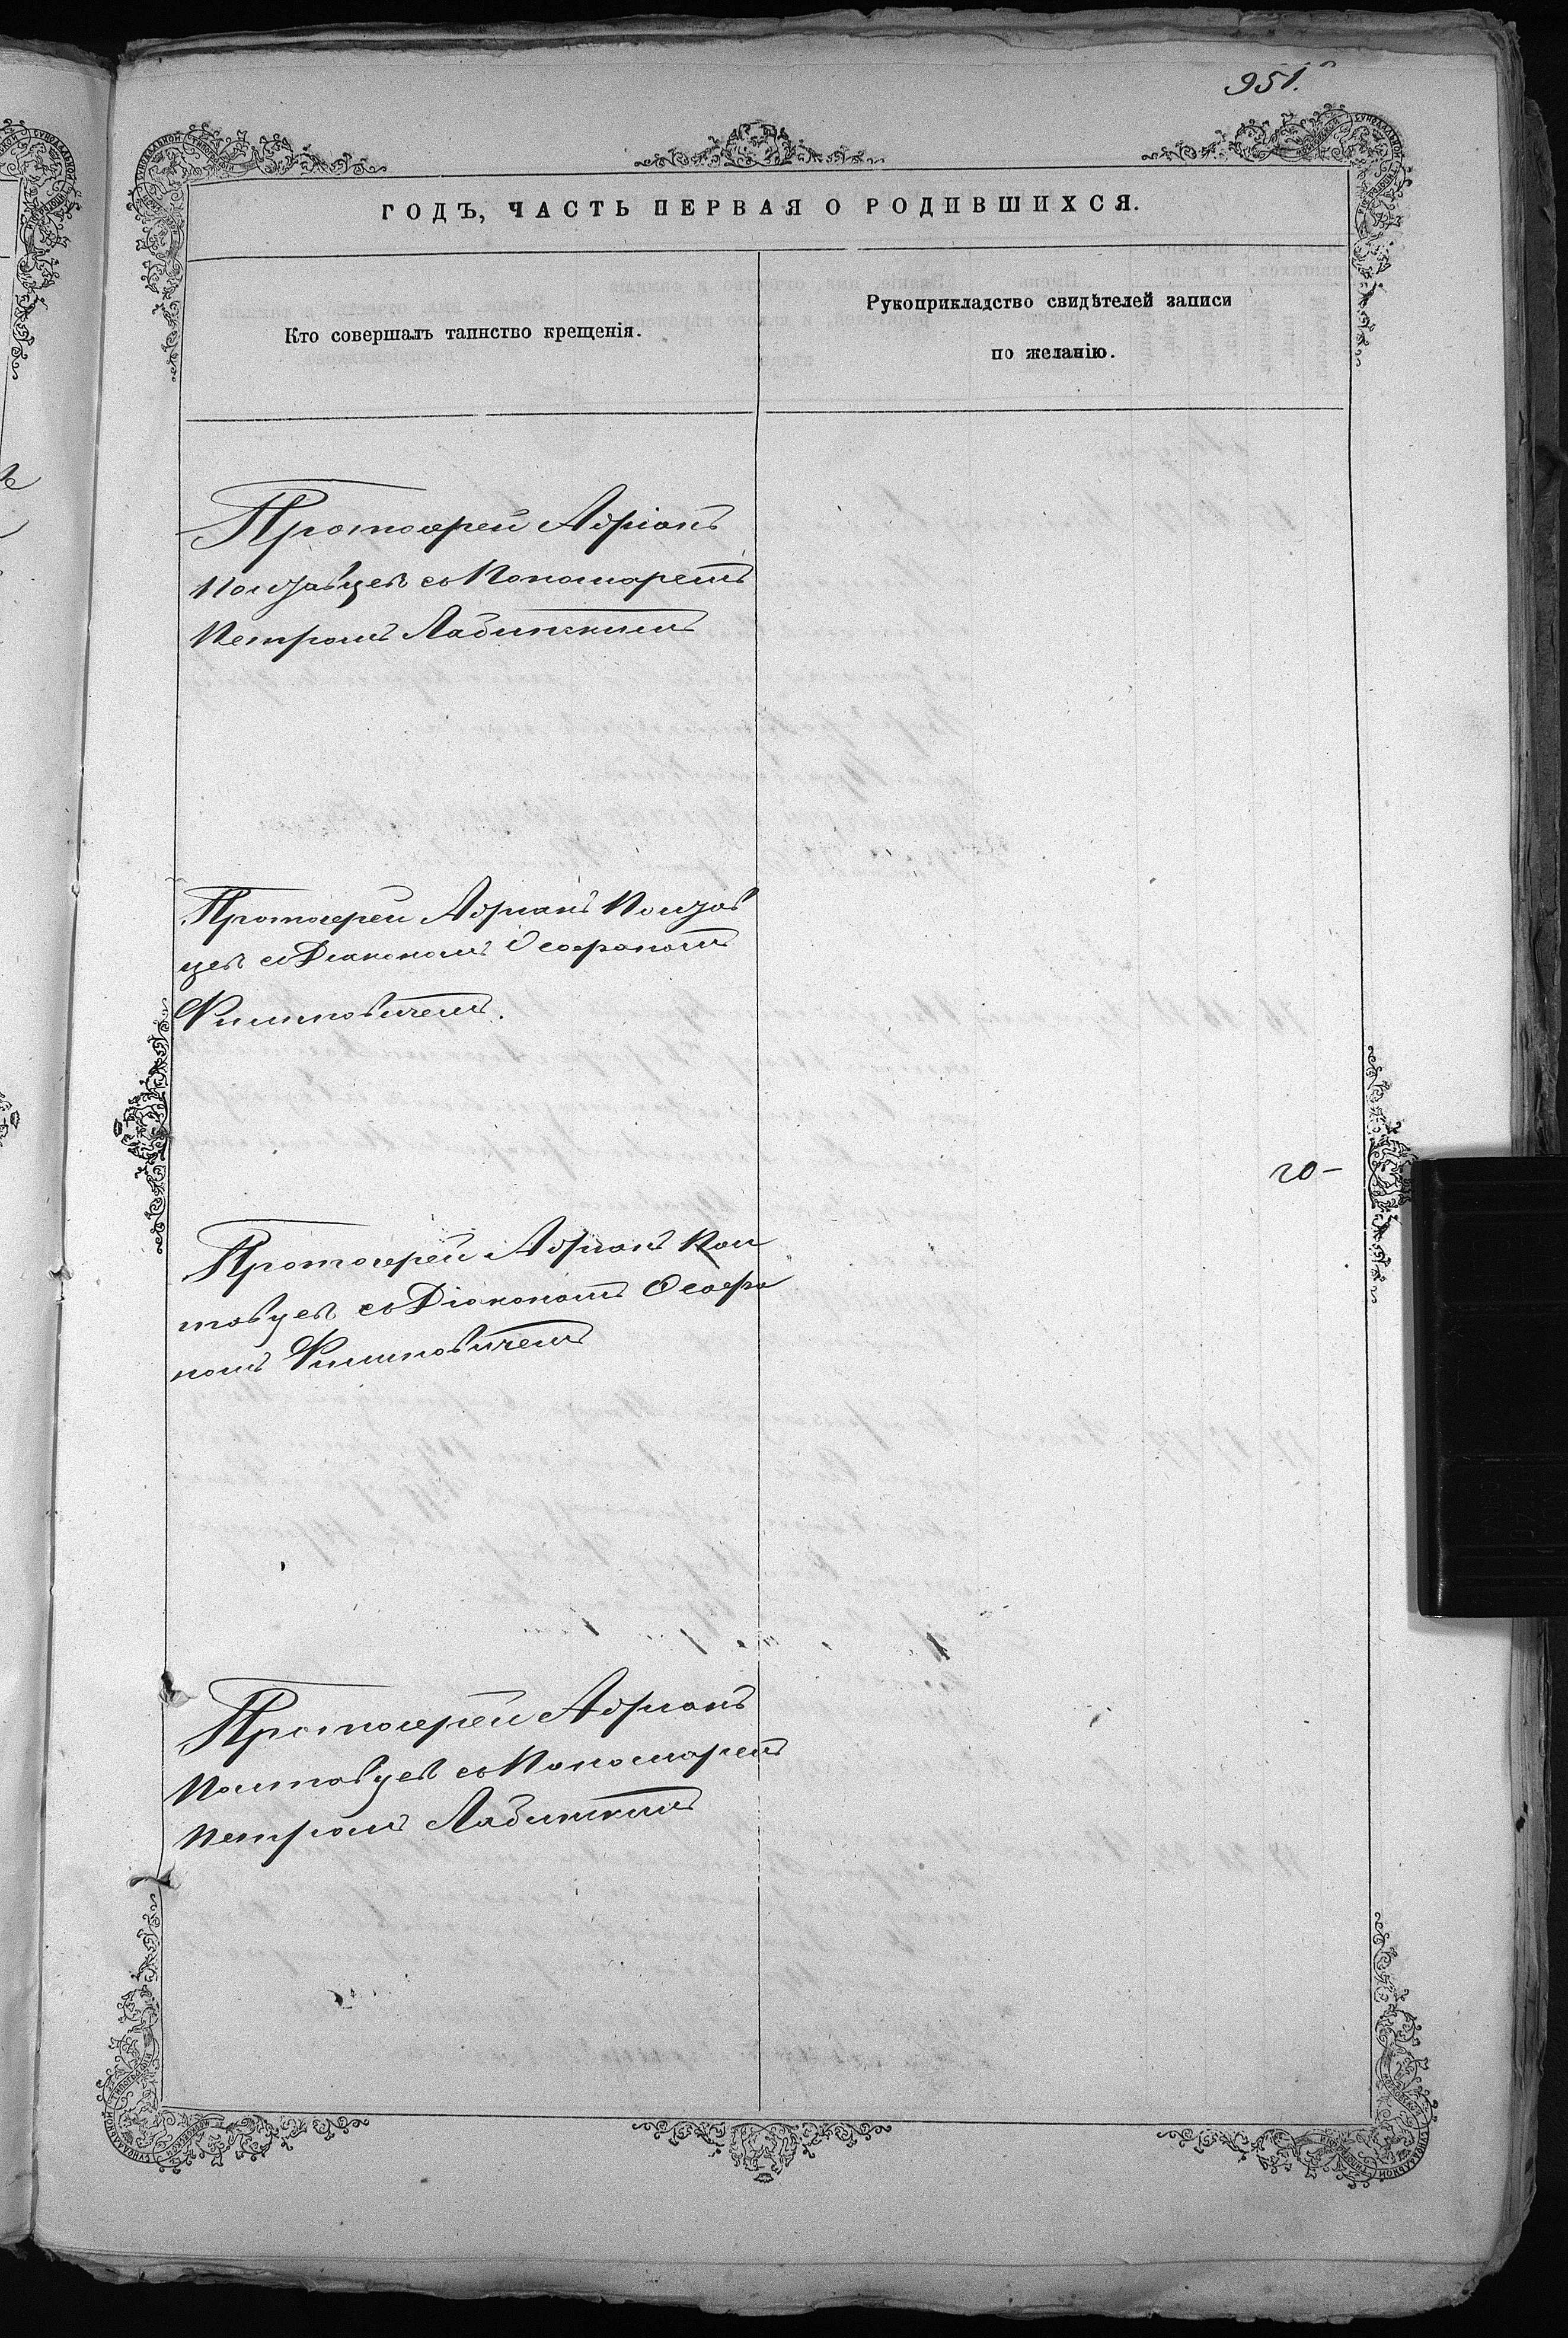 951.
ГОДЪ, ЧАСТЬ ПЕРВАЯ О РОДИВШИХСЯ.
Кто совершалъ таинство крещенія.
Рукоприкладство свидѣтелей записи
по желанію.
Протоіерей Адріанъ
съ Пономаремъ
Петромъ Лабинскимъ
Протоіерей Адріанъ
съ Діакономъ Ѳеофаномъ
Филиповичемъ.
20-
Протоіерей Адріанъ
съ Діакономъ Ѳеофа
номъ Филиповичемъ
Протоіерей Адріанъ
съ Пономаремъ
Петромъ Лабинскимъ